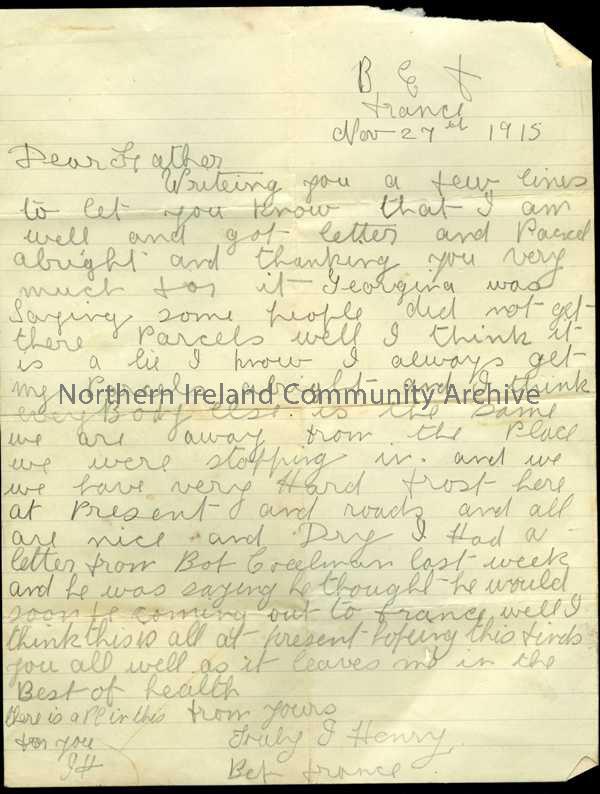 B E F
France
Nov 27th 1915
Dear Father
Writeing you a few lines
to let you know that I am
well and got letter and Parcel
alright and thanking you very
much for it Georgina was
Saying some people did not get
there Parcels well I think it
is a lie I know I always get
my Parcels alright and I think
everyBody else is the same
we are away from the Place
we were stopping in. and we
we have very Hard frost here
at Present and roads and all
are nice and Dry I Had a
letter from Bob Coalman last week
and he was saying he thought he would
soon be coming out to france well I
think this is all at present hopeing this finds
you all well as it leaves me in the
Best of health
there is a PC in this from yours
for you Truly J Henry
JH Bef france.
Northern Ireland Community Archive